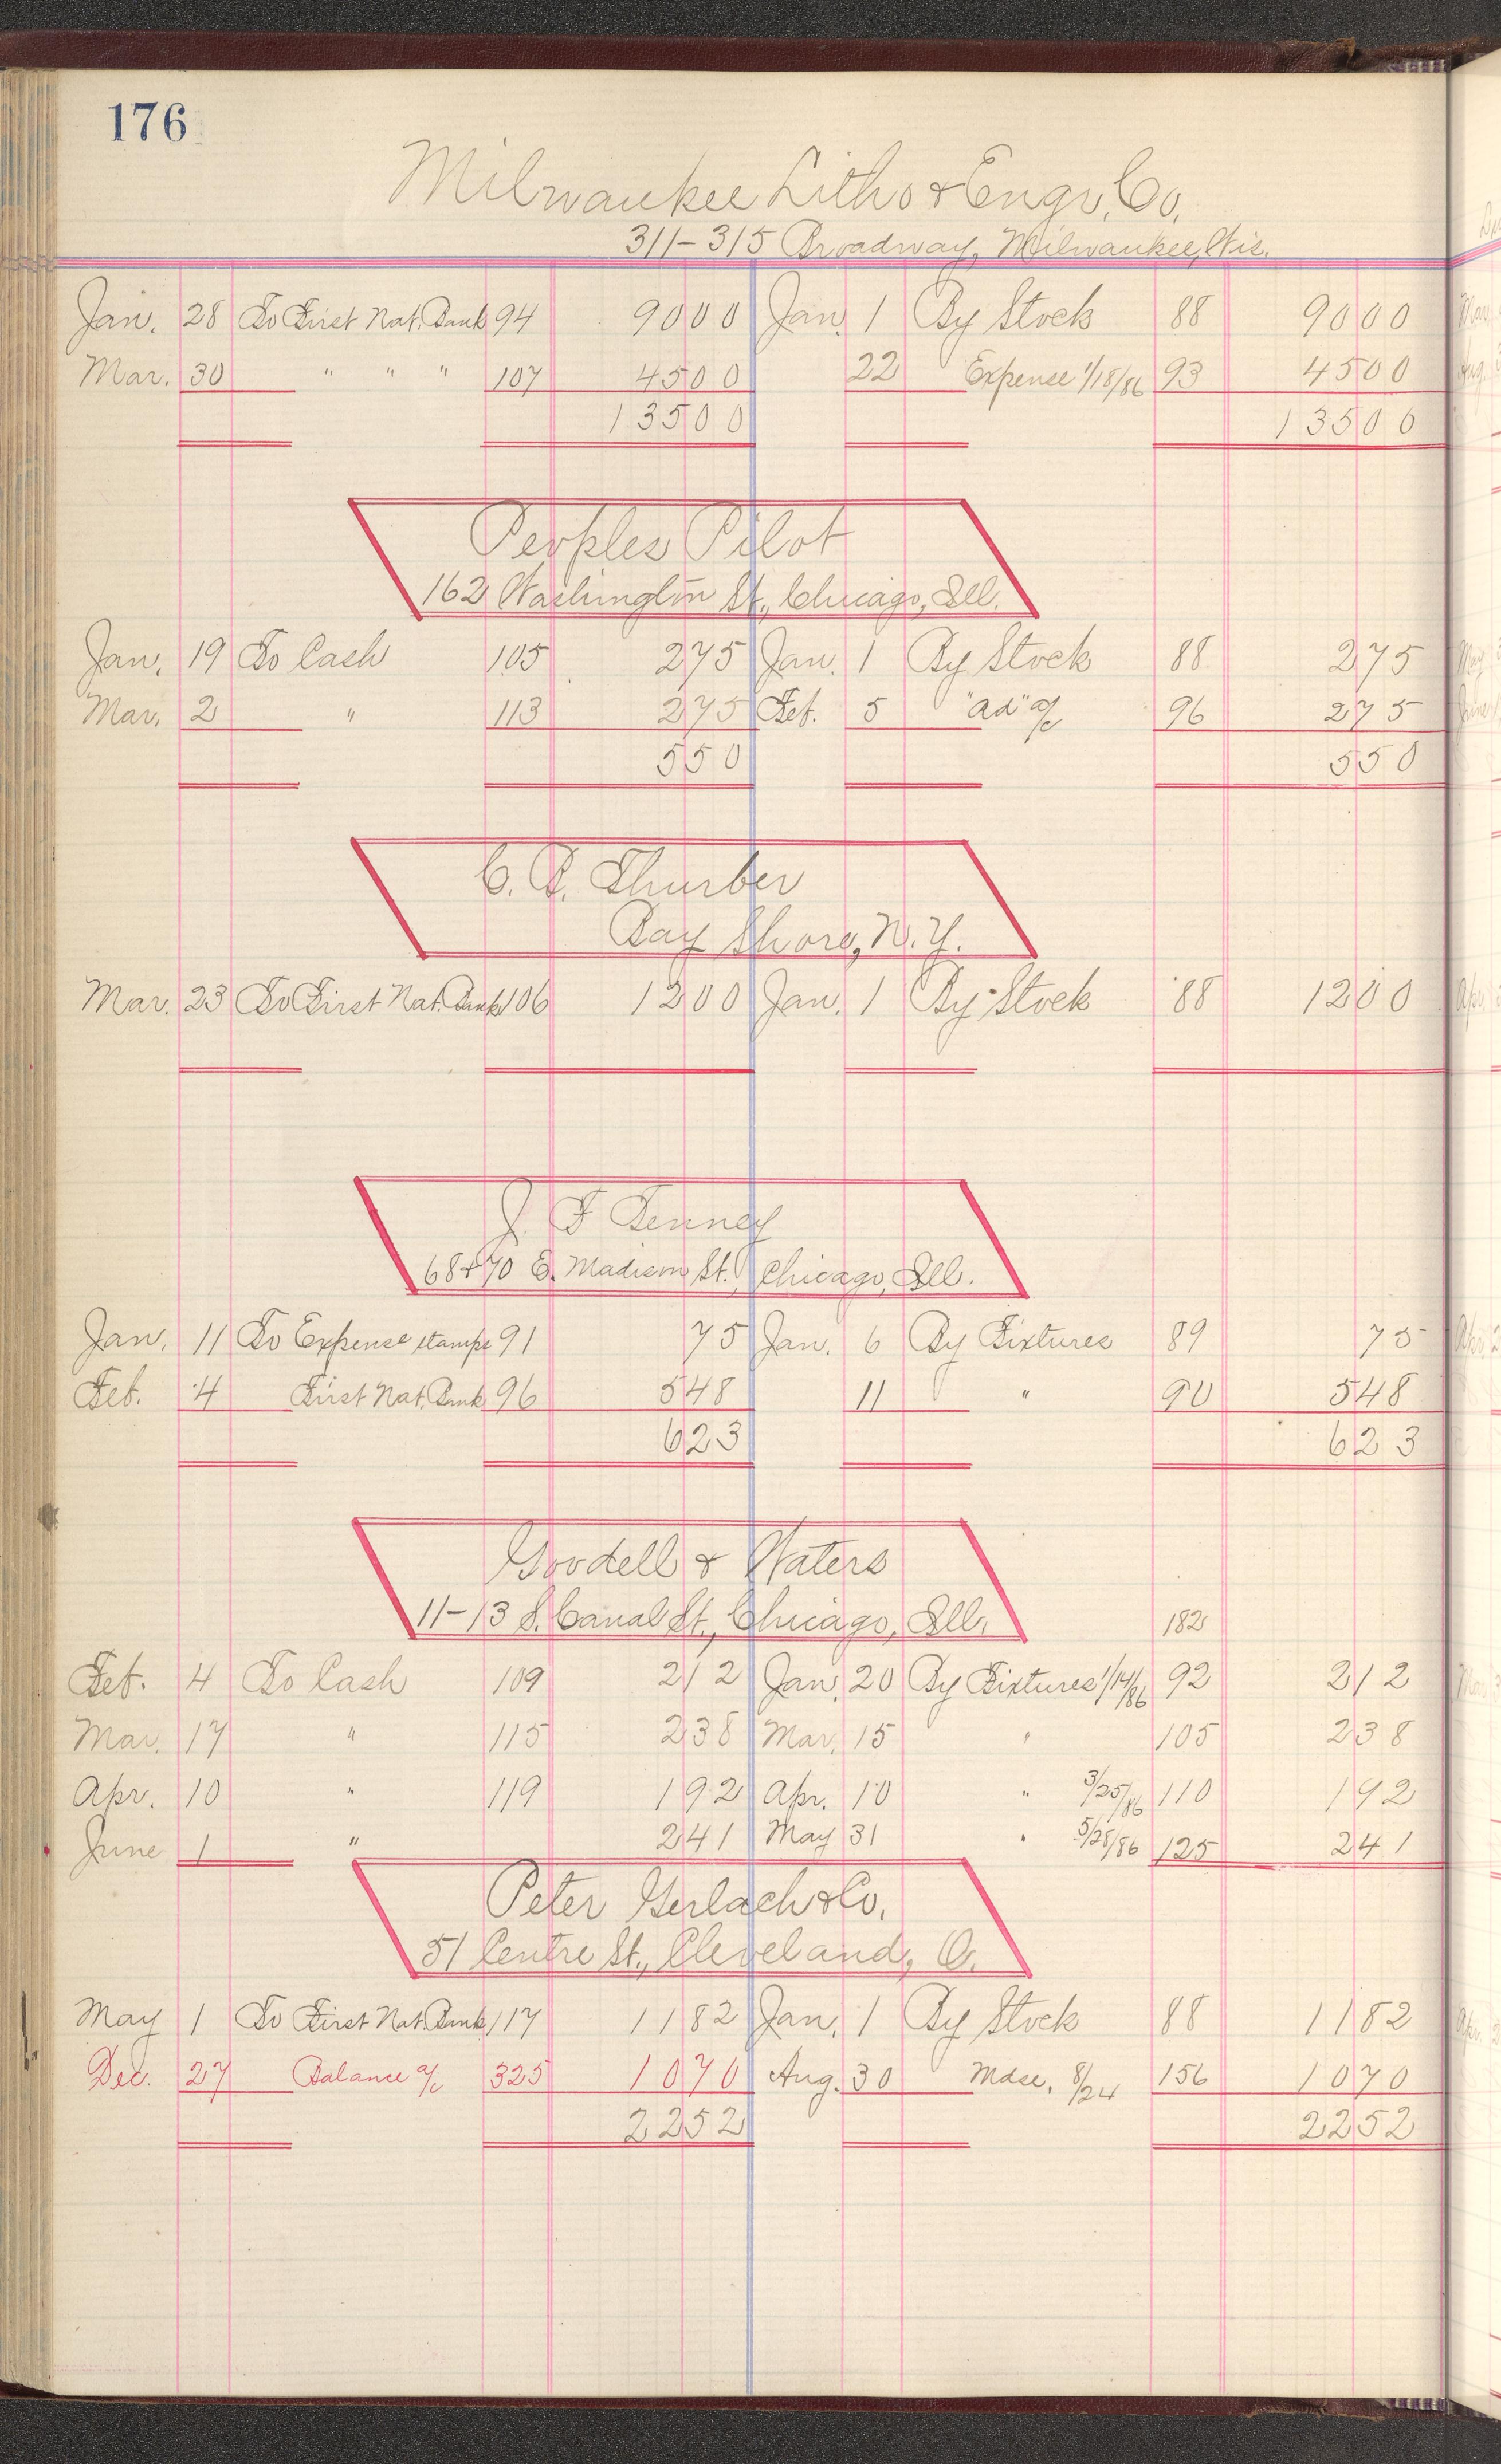 176
Milwaukee Litho & Engr. Co.
311-315 Broadway, Milwaukee, Wis.
Jan. 28 To First Nat. Bank 94 9000 Jan. 1 By Stock 88 9000
Mar. 30 " " " 107 4500 22 Expense 1/18/86 93 4500
13500 13500
Peoples Pilot
162 Washington St., Chicago, Ill.
Jan. 19 To Cash 105 275 Jan. 1 By Stock 88 275
Mar. 2 " 113 275 Feb. 5 "Ad" a/c 96 275
550 550
C. B. Thurber
Bay Shore, N.Y.
Mar. 23 To First Nat. Bank 106 1200 Jan. 1 By Stock 88 1200
J. F Tenney
68 & 70 E. Madison St., Chicago, Ill.
Jan. 11 To Expense stamps 91 75 Jan. 6 By Fixtures 89 75
Feb. 4 First Nat. Bank 96 548 11 " 90 548
623 623
Goodell & Waters
11-13 S. Canal St., Chicago, Ill. 182
Feb. 4 To Cash 109 212 Jan. 20 By Fixtures 1/14/86 92 212
Mar. 17 " 115 238 Mar. 15 " 105 238
Apr. 10 " 119 192 Apr. 10 " 3/25/86 110 192
June 1 " 241 May 31 " 5/28/86 125 241
Peter Gerlach & Co.
51 Centre St., Cleveland, O.
May 1 To First Nat. Bank 117 1182 Jan. 1 By Stock 88 1182
Dec. 27 Balance a/c 325 1070 Aug. 30 Mdse. 8/24 156 1070
2252 2252